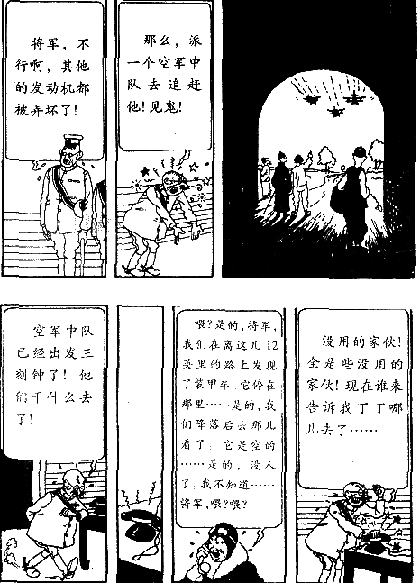 将军，不
行啊，其他
的发动机都
被弄坏了！
那么，派
一个空军中
队去追赶
他！见鬼！
空军中队
已经出发三
刻钟了！他
们干什么去
了！
喂？是的，将军，
我们在离这儿12
英里的路上发现
了装甲车。它停在
那里……是的，我
们降落后去那儿
看了；它是空的
……是的，没人
了；我不知道……
将军，喂？喂？
没用的家伙！
全是些没用的
家伙！现在谁来
告诉我丁丁哪
儿去了？……